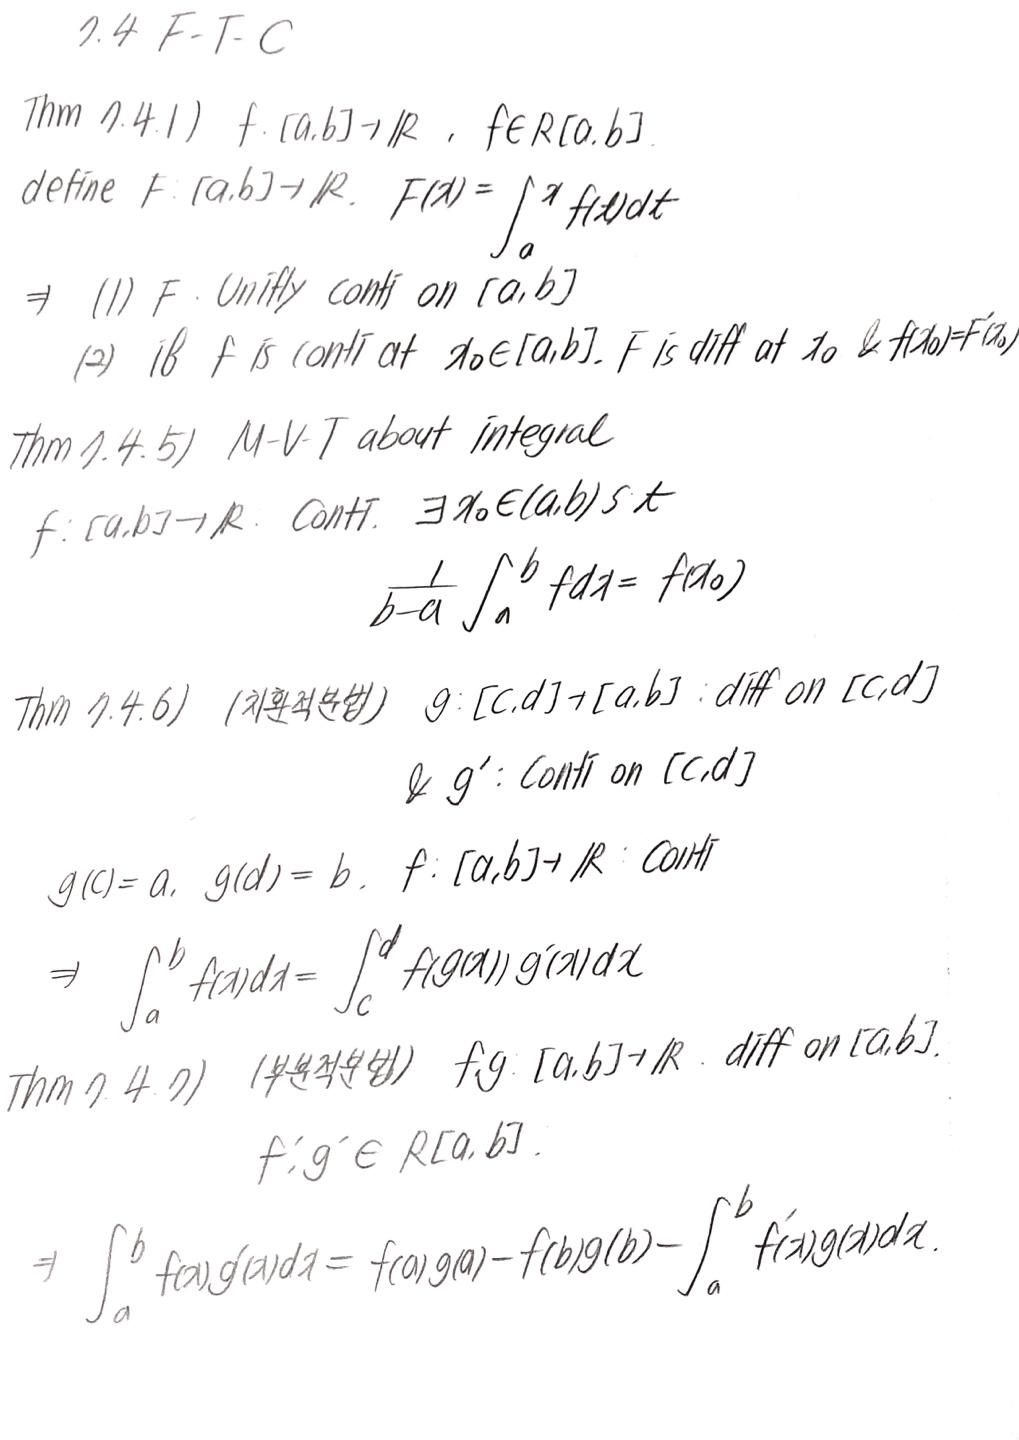 7.4 F-T-C
Thm 7.4.1) f: [a,b]→ℝ, f∈R[a,b].
define F: [a,b]→ℝ. F(x) = ∫_a^x f(t)dt
⇒ (1) F. Unifly conti on [a,b]
(2) if f is conti at x₀∈[a,b]. F is diff at x₀ & f(x₀)=F'(x₀)
Thm 7.4.5) M-V-T about integral
f: [a,b]→ℝ. Conti. ∃x₀∈(a,b) s.t
1/(b-a) ∫_a^b fdx = f(x₀)
Thm 7.4.6) (치환적분법) g: [c,d]→[a,b] : diff on [c,d]
& g': Conti on [c,d]
g(c)=a, g(d)=b, f: [a,b]→ℝ: Conti
⇒ ∫_a^b f(x)dx = ∫_c^d f(g(x))g'(x)dx
Thm 7.4.7) (부분적분법) f,g: [a,b]→ℝ. diff on [a,b].
f', g' ∈ R[a,b].
⇒ ∫_a^b f(x)g'(x)dx = f(a)g(a)-f(b)g(b)-∫_a^b f'(x)g(x)dx.